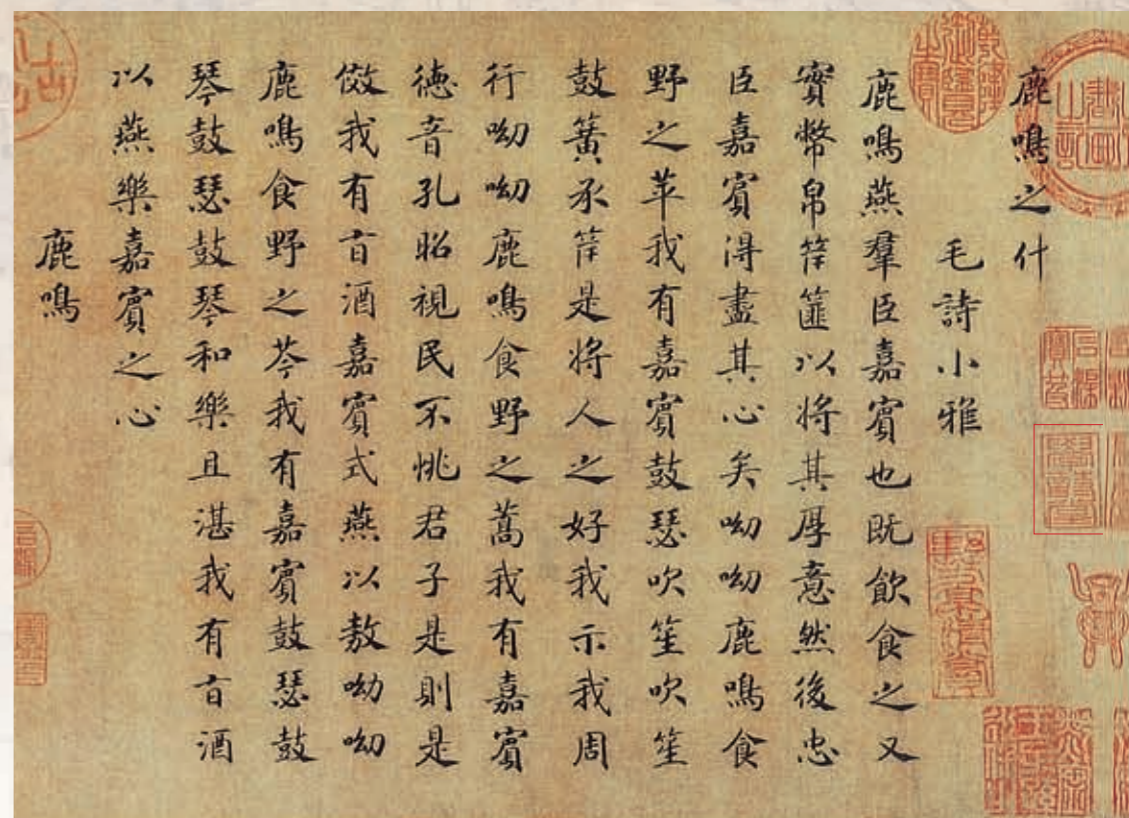 鹿鳴之什
毛詩小雅
鹿鳴燕羣臣嘉賓也既飲食之又
實幣帛筐篚以將其厚意然後忠
臣嘉賓得盡其心矣呦呦鹿鳴食
野之苹我有嘉賓鼓瑟吹笙吹笙
鼓簧承筐是將人之好我示我周
行呦呦鹿鳴食野之蒿我有嘉賓
德音孔昭視民不恌君子是則是
傚我有旨酒嘉賓式燕以敖呦呦
鹿鳴食野之芩我有嘉賓鼓瑟鼓
琴鼓瑟鼓琴和樂且湛我有旨酒
以燕樂嘉賓之心
鹿鳴
乾隆御覽之寶